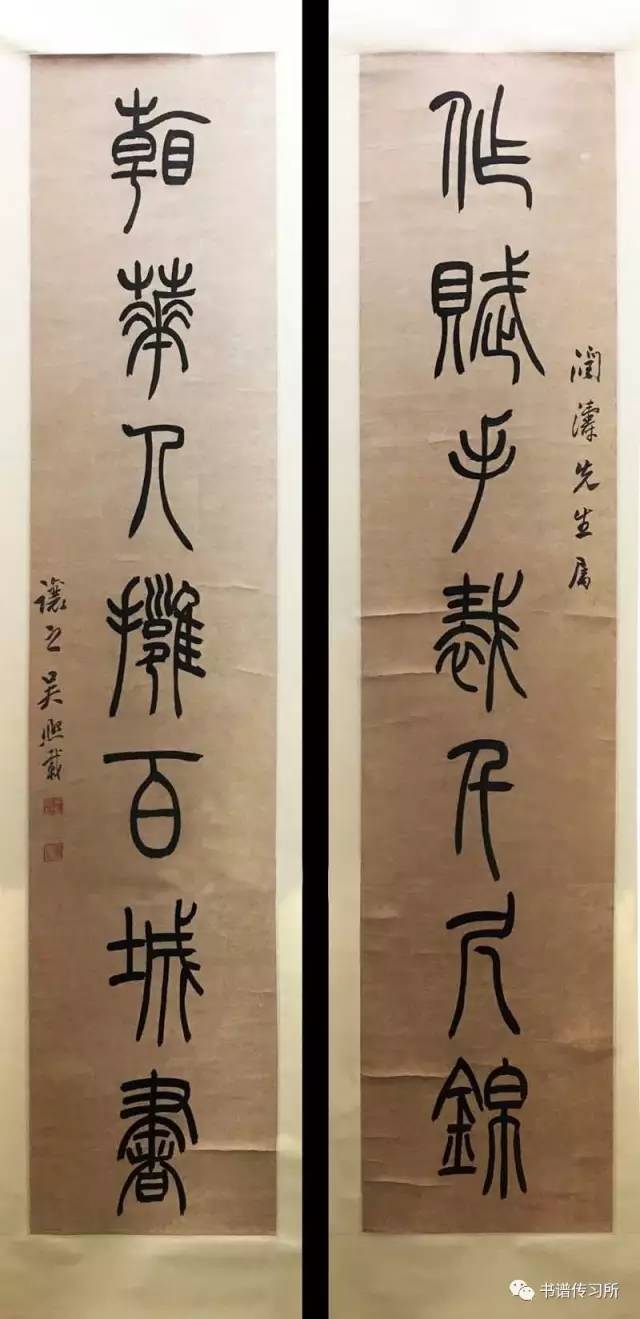 作賦手裁千尺錦
濤先生屬
華人擁百城書
讓之吳熙載
书谱传习所